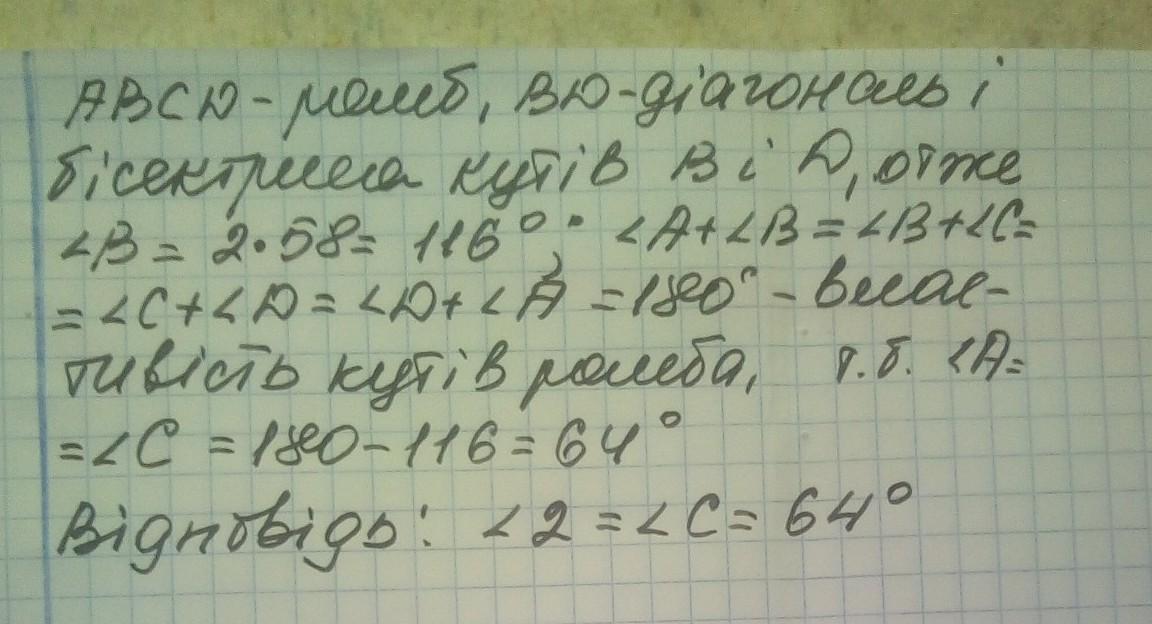 ABCD - ромб, BD - діагональ і
бісектриса кутів B і D, отже
∠B = 2·58 = 116°; ∠A+∠B = ∠B+∠C =
= ∠C+∠D = ∠D+∠A = 180° - влас-
тивість кутів ромба, т.б. ∠A=
=∠C = 180-116 = 64°
Відповідь: ∠2 = ∠C = 64°